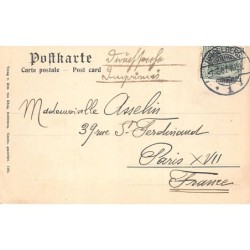 Postkarte
Carte postale - Post card
Drucksache
Imprimés
Mademoiselle Asselin
39 rue St Ferdinand
Paris XVII
France